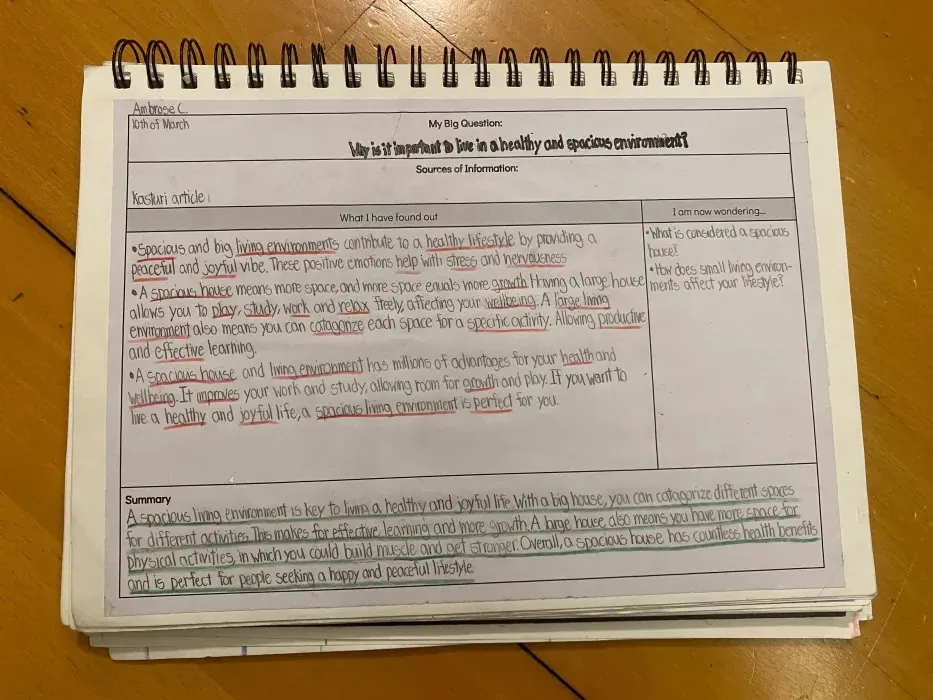 Ambrose C.
10th of March
My Big Question:
Why is it important to live in a healthy and spacious environment?
Sources of Information:
Kasturi article
What I have found out
•Spacious and big living environments contribute to a healthy lifestyle by providing a
peaceful and joyful vibe. These positive emotions help with stress and nervousness
•A spacious house means more space, and more space equals more growth. Having a large house
allows you to play, study, work and relax freely, affecting your wellbeing. A large living
environment also means you can catagorize each space for a specific activity. Allowing productive
and effective learning.
•A spacious house and living environment has millions of advantages for your health and
wellbeing. It improves your work and study, allowing room for growth and play. If you want to
live a healthy and joyful life, a spacious living environment is perfect for you.
I am now wondering...
•What is considered a spacious
house?
•How does small living environ-
ments affect your lifestyle?
Summary
A spacious living environment is key to living a healthy and joyful life. With a big house, you can catagorize different spaces
for different activities. This makes for effective learning and more growth. A large house also means you have more space for
physical activities, in which you could build muscle and get stronger. Overall, a spacious house has countless health benefits
and is perfect for people seeking a happy and peaceful lifestyle.